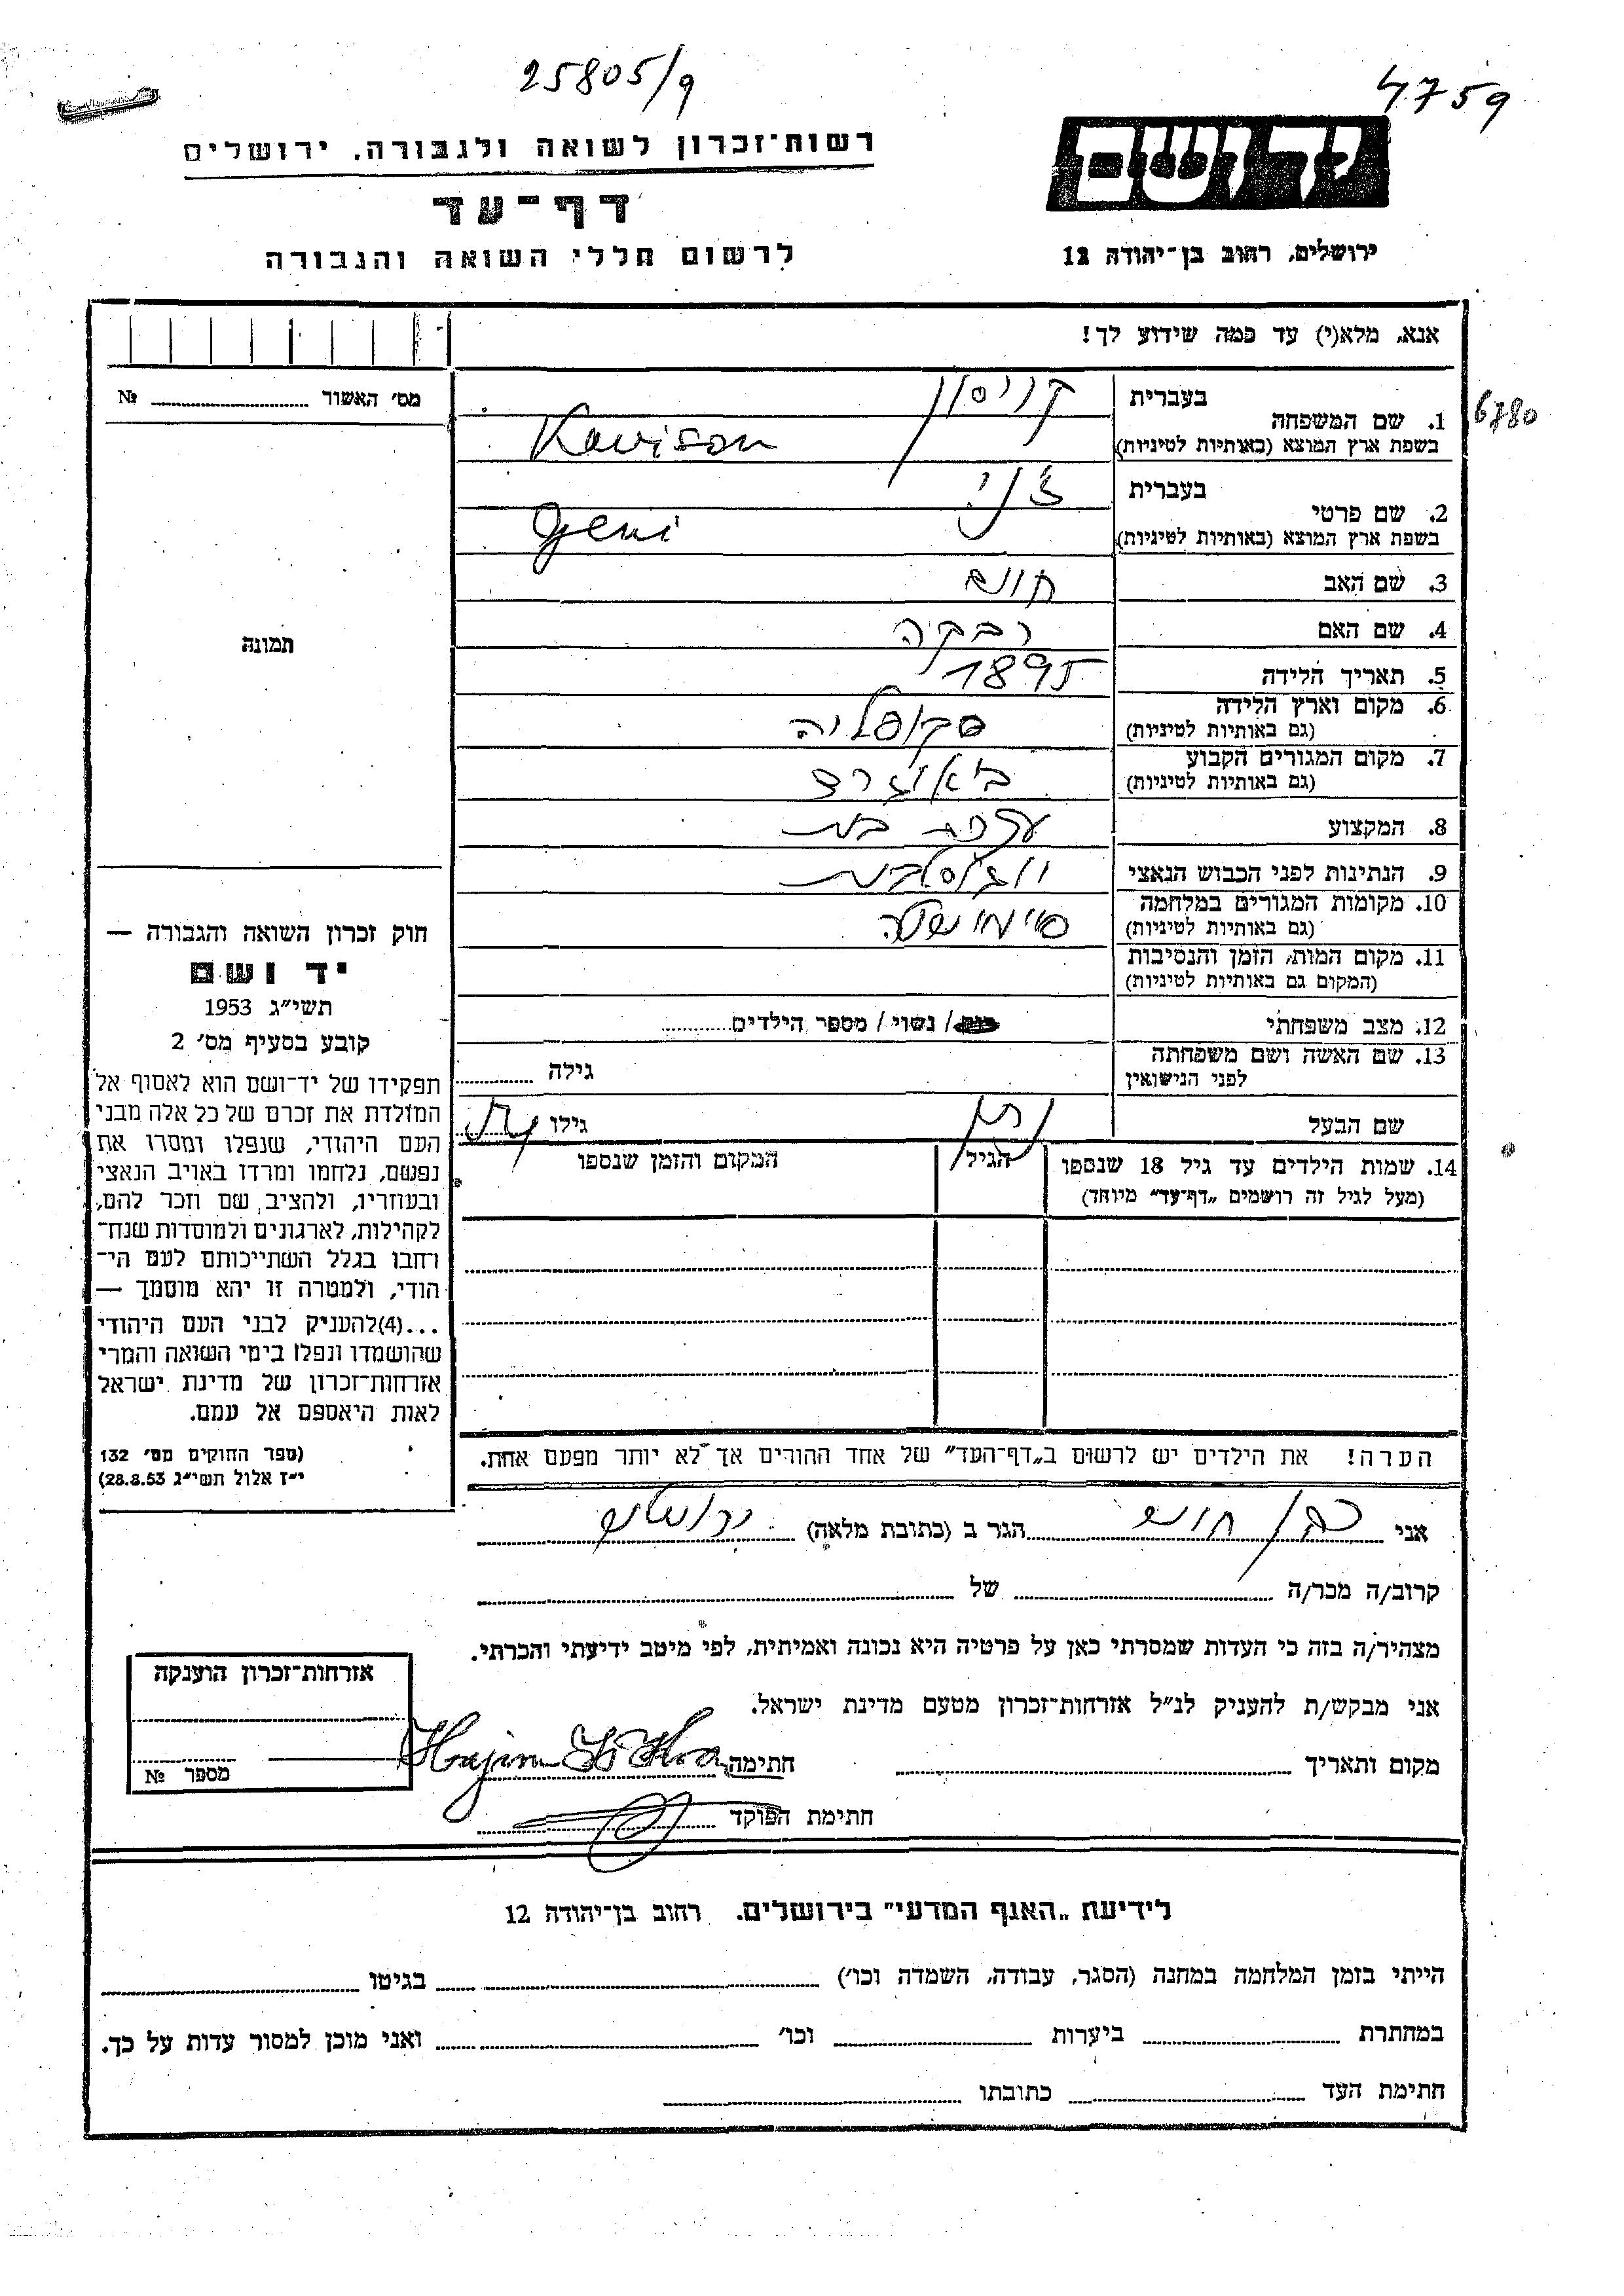 25805/9
4759
יד ושם
רשות־זכרון לשואה ולגבורה, ירושלים
דף־עד
לרשום חללי השואה והגבורה
ירושלים, רחוב בן־יהודה 12
אנא, מלא(י) עד כמה שידוע לך!
מס' האשור № 
6780
1. שם המשפחה
בעברית קויסון
בשפת ארץ המוצא (באותיות לטיניות) Kavison
2. שם פרטי
בעברית ז'ני
בשפת ארץ המוצא (באותיות לטיניות) Geni
3. שם האב חיים
4. שם האם רבקה
5. תאריך הלידה 1895
6. מקום וארץ הלידה סקופליה
(גם באותיות לטיניות)
7. מקום המגורים הקבוע ביאוגרד
(גם באותיות לטיניות)
8. המקצוע עקרת בית
9. הנתינות לפני הכבוש הנאצי יוגוסלבית
10. מקומות המגורים במלחמה
(גם באותיות לטיניות)
11. מקום המות, הזמן והנסיבות
(המקום גם באותיות לטיניות)
12. מצב משפחתי / נשוי / מספר הילדים
13. שם האשה ושם משפחתה
לפני הנישואין
גילה
שם הבעל נתן
גילו
14. שמות הילדים עד גיל 18 שנספו
(מעל לגיל זה רושמים „דף־עד" מיוחד)
הגיל
המקום והזמן שנספו
הערה! את הילדים יש לרשום ב„דף־העד" של אחד ההורים אך לא יותר מפעם אחת.
תמונה
חוק זכרון השואה והגבורה —
יד ושם
תשי"ג 1953
קובע בסעיף מס' 2
תפקידו של יד־ושם הוא לאסוף אל
המולדת את זכרם של כל אלה מבני
העם היהודי, שנפלו ומסרו את
נפשם, נלחמו ומרדו באויב הנאצי
ובעוזריו, ולהציב שם וזכר להם,
לקהילות, לארגונים ולמוסדות שנח־
רחבו בגלל השתייכותם לעם הי־
הודי, ולמטרה זו יהא מוסמך —
...(4)להעניק לבני העם היהודי
שהושמדו ונפלו בימי השואה והמרי
אזרחות־זכרון של מדינת ישראל
לאות היאספם אל עמם.
(ספר החוקים מס' 132
י"ז אלול תשי"ג 28.8.53)
אני כהן חיים הגר ב (כתובת מלאה) ירושלים
קרוב/ה מכר/ה של
מצהיר/ה בזה כי העדות שמסרתי כאן על פרטיה היא נכונה ואמיתית, לפי מיטב ידיעתי והכרתי.
אני מבקש/ת להעניק לנ"ל אזרחות־זכרון מטעם מדינת ישראל.
מקום ותאריך חתימה Hajim
חתימת הפוקד
אזרחות־זכרון הוענקה
מספר №
לידיעת „האגף המדעי" בירושלים. רחוב בן־יהודה 12
הייתי בזמן המלחמה במחנה (הסגר, עבודה, השמדה וכו') בגיטו
במחתרת ביערות וכו' ואני מוכן למסור עדות על כך.
חתימת העד כתובתו